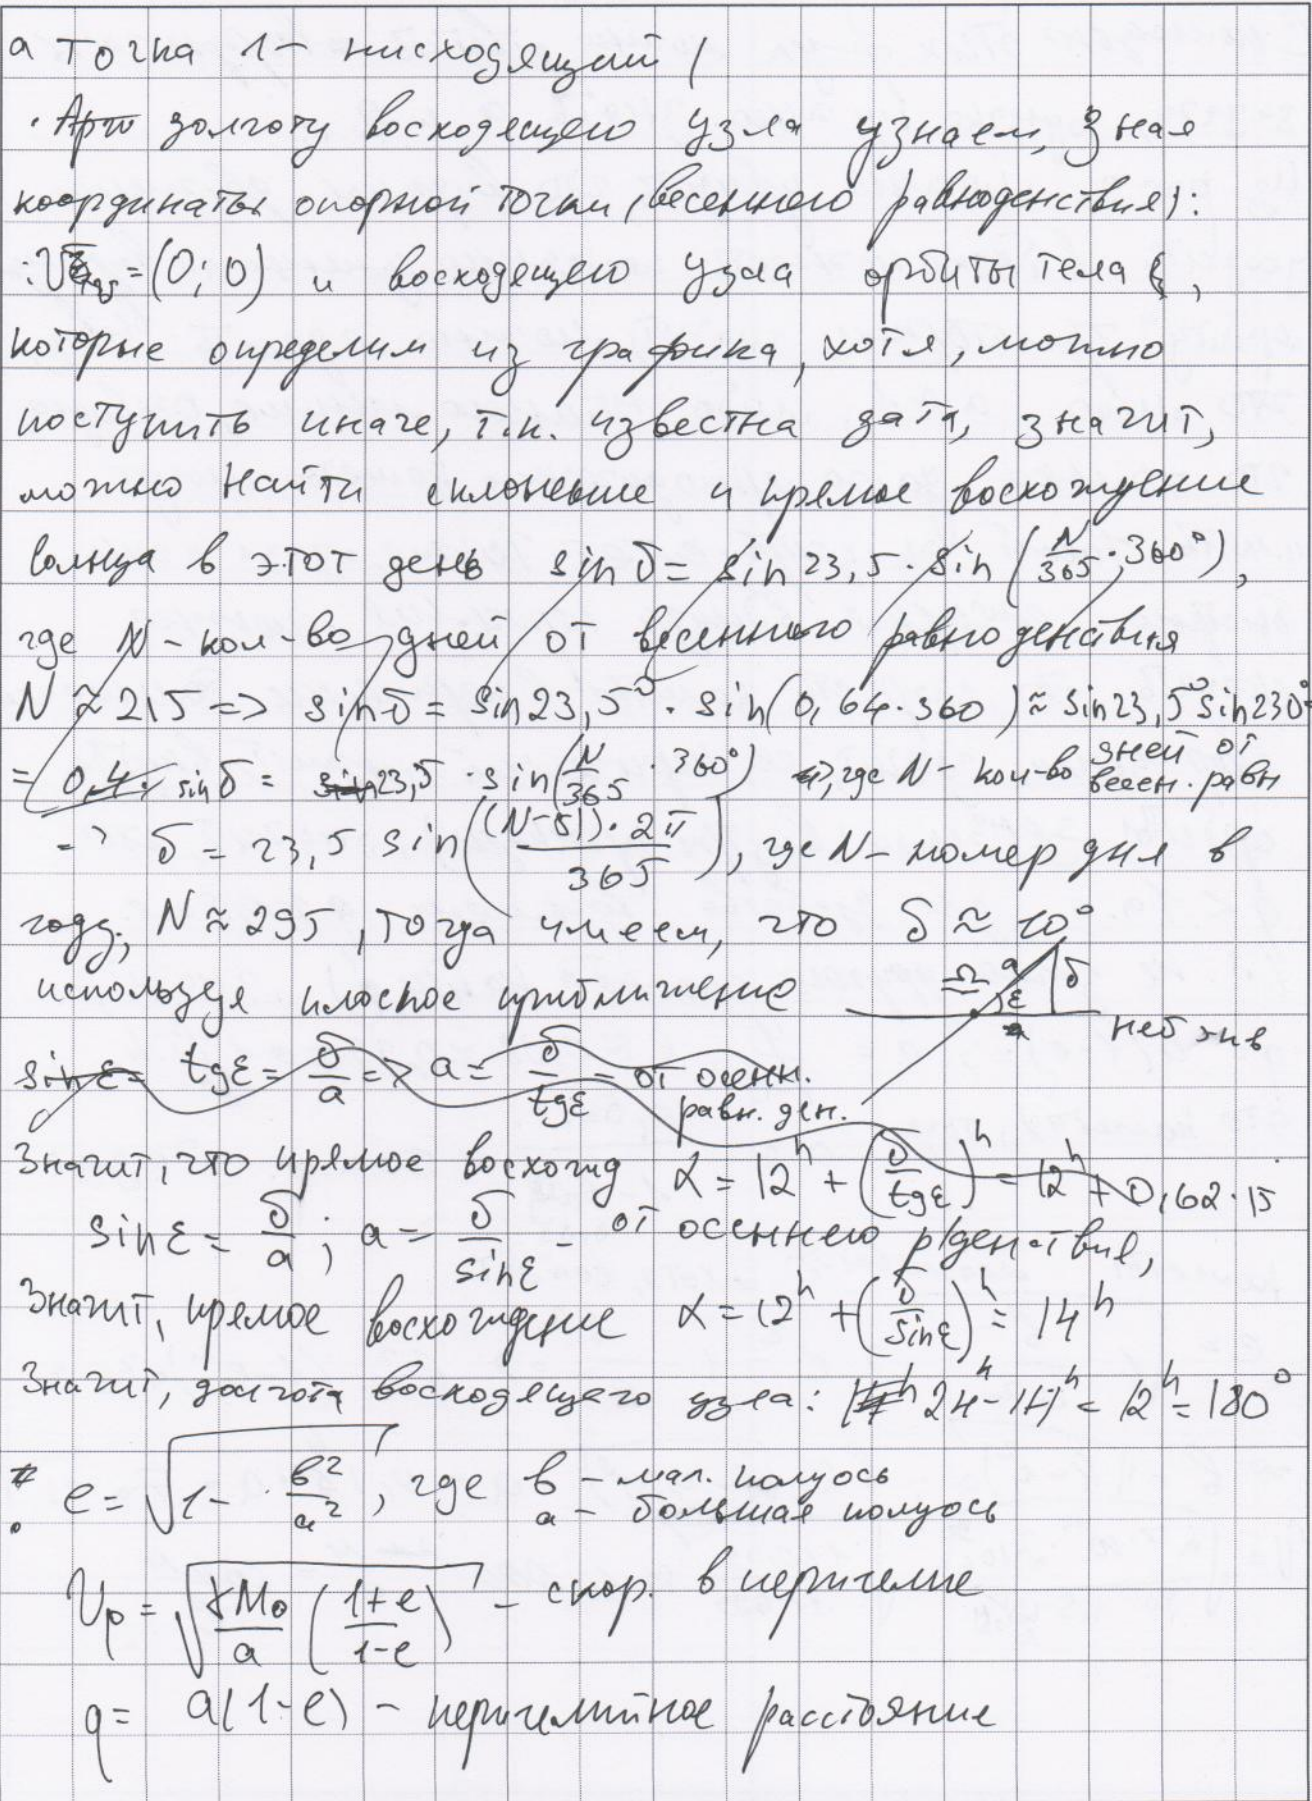 а точка 1 - нисходящий /
· Арт долготу восходящего узла узнаем, зная
координаты опорной точки (весеннего равноденствия):
= (0; 0) и восходящего узла орбиты тела ,
которые определим из графика, хотя, можно
поступить иначе, т.к. известна дата, значит,
можно найти склонение и прямое восхождение
солнца в этот день sin δ = sin 23,5 · sin (N/365 · 360°),
где N - кол-во дней от весеннего равноденствия
N ≈ 215 => sin δ = sin 23,5° · sin(0,64 · 360) ≈ sin 23,5° sin 230°
= 0,4 · sin δ = sin 23,5 · sin(N/365 · 360°) , где N - кол-во дней от весен. равн
=> δ = 23,5 sin((N-81) · 2π / 365), где N - номер дня в
году, N ≈ 295, тогда имеем, что δ ≈ 10°
используя плоское приближение
Ω a ε δ a неб экв
sin ε = tg ε = δ/a => a = δ/tg ε - от осенн. равн. ден.
Значит, что прямое восхожд α = 12h + (δ/tg ε)h = 12h + 0,62 · 15
sin ε = δ/a ; a = δ/sin ε - от осеннего р/денствия,
Значит, прямое восхождение α = 12h + (δ/sin ε)h = 14h
Значит, долгота восходящего узла: 24h - 14h = 12h = 180°
e = √(1 - b²/a²), где b - мал. полуось
a - большая полуось
Vp = √(γM⊙/a ((1+e)/(1-e))) - скор. в перигелие
q = a(1-e) - перигелийное расстояние